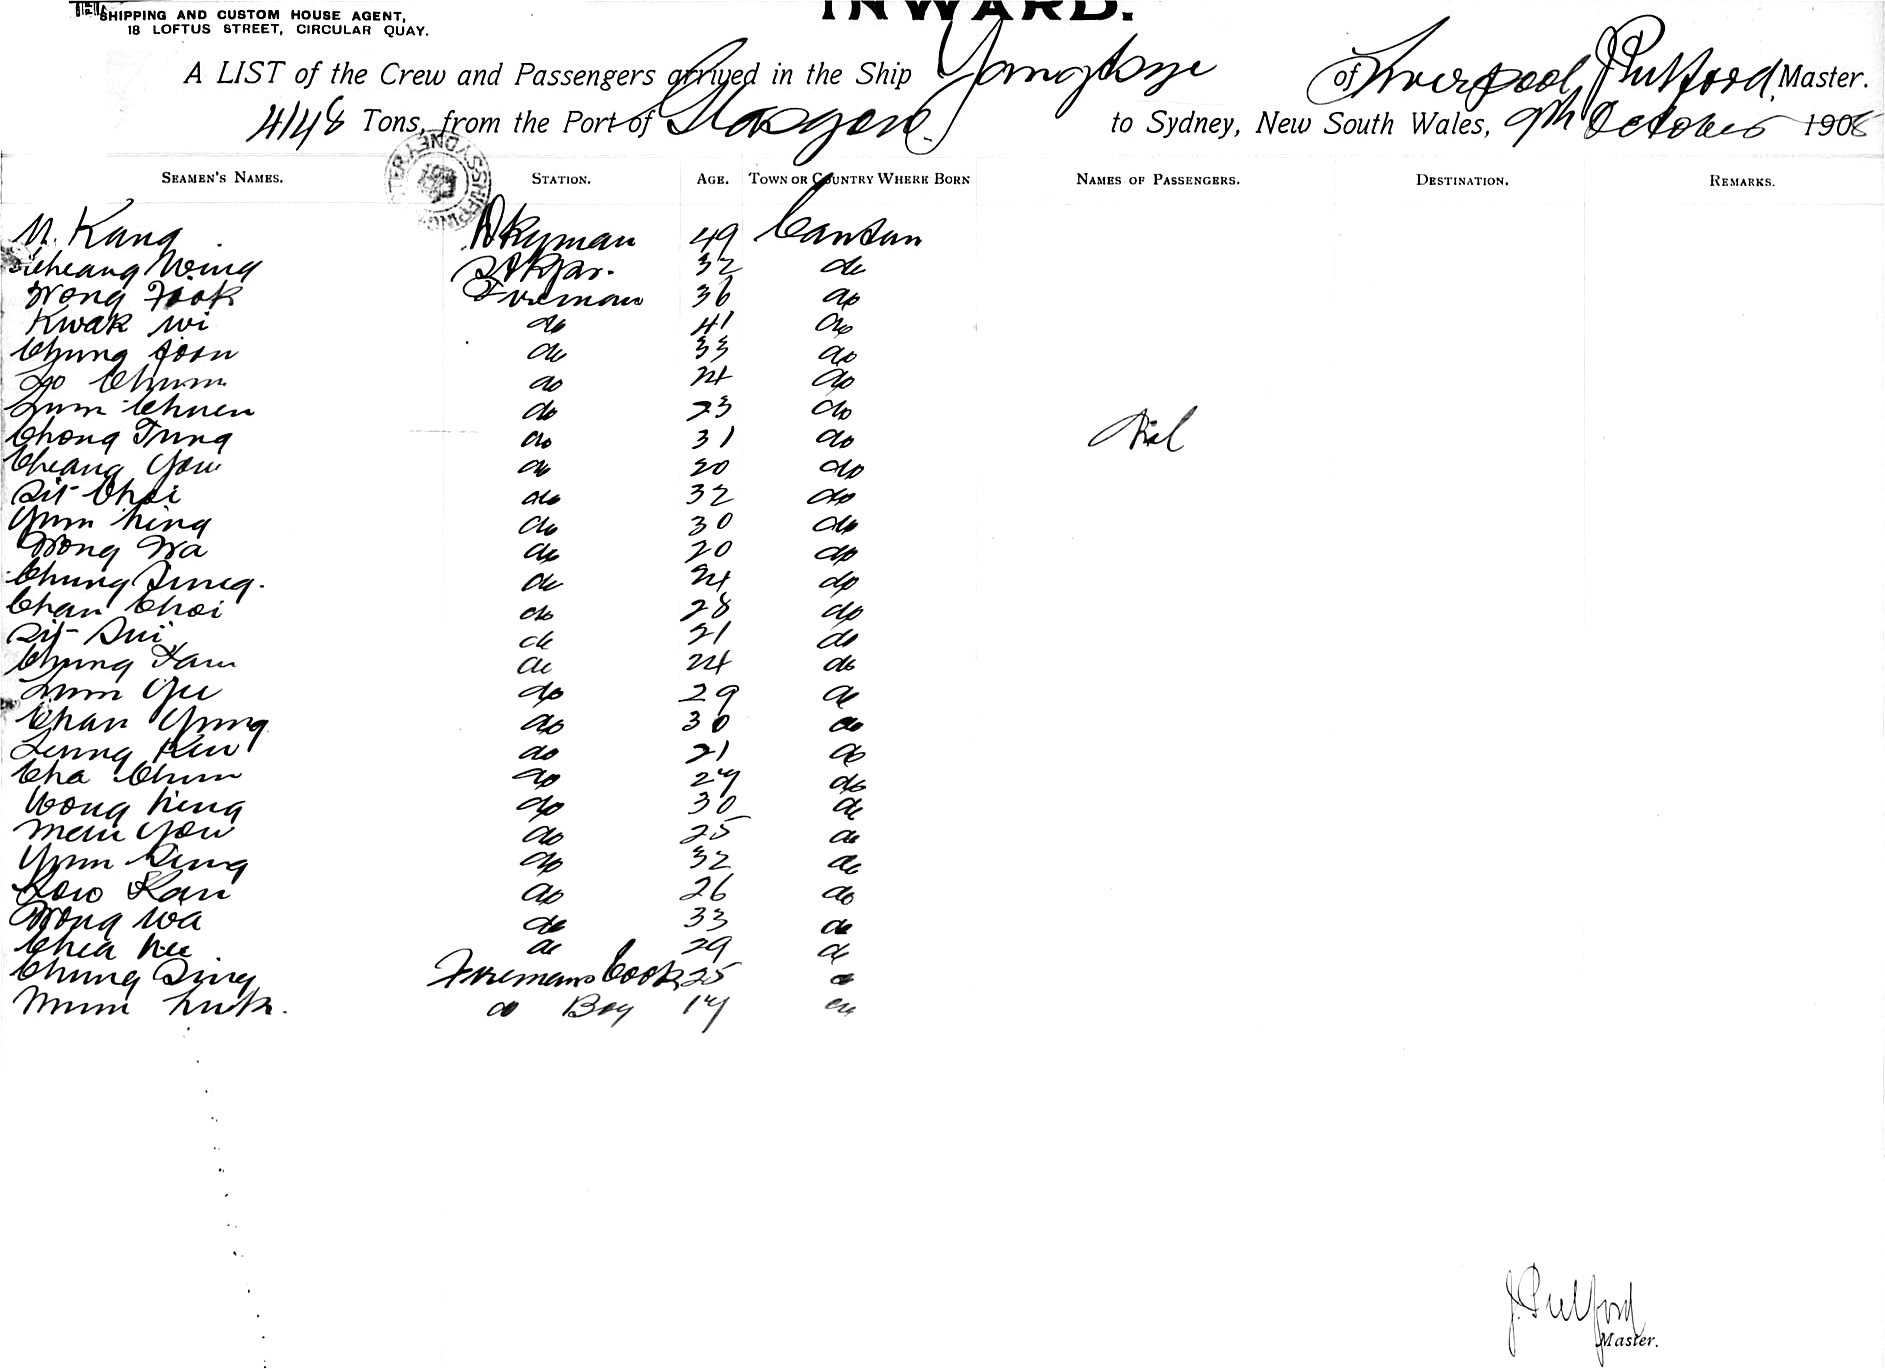 SHIPPING AND CUSTOM HOUSE AGENT,
18 LOFTUS STREET, CIRCULAR QUAY.
INWARD.
A LIST of the Crew and Passengers arrived in the Ship Yangtsze of Liverpool, J Pulford, Master.
4148 Tons, from the Port of Glasgow to Sydney, New South Wales, 9th October 1908
SEAMEN'S NAMES. STATION. AGE. TOWN OR COUNTRY WHERE BORN NAMES OF PASSENGERS. DESTINATION. REMARKS.
Kang Dkyman 49 Canton
Cheang Wing Stkpr. 32 do
Wong Fook Fireman 36 do
Kwak Wi do 41 do
Chung Joon do 33 do
Lo Chum do 24 do
Lum Chuen do 23 do
Chong Tung do 31 do Nil
Cheang You do 20 do
Sit Choi do 32 do
Yum hing do 30 do
Wong Wa do 20 do
Chung Sing. do 24 do
Chan Choi do 28 do
Sit Sui do 21 do
Chung Fam do 24 do
Lum Yu do 29 do
Chan Yung do 30 do
Leung Kew do 21 do
Cha Chum do 27 do
Wong hing do 30 do
Mew You do 25 do
Yum Sing do 32 do
Kow Kan do 26 do
Wong Wa do 33 do
Chea hee do 29 do
Chung Sing Firemans Cook 25 do
Mum huk. do Boy 17 do
J. Pulford
Master.